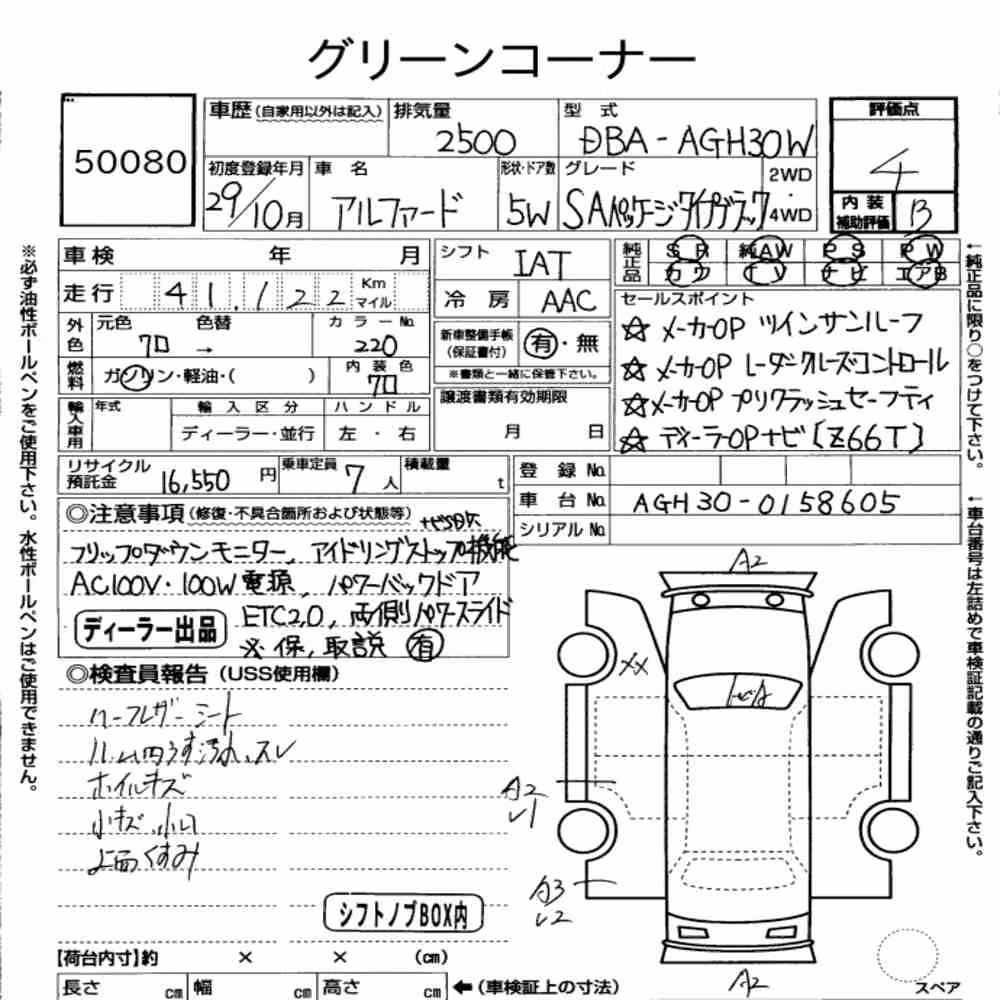 グリーンコーナー
50080
車歴(自家用以外は記入)
排気量
2500
型 式
DBA-AGH30W
評価点
4
内装補助評価
B
初度登録年月
29/10月
車 名
アルファード
形状・ドア数
5W
グレード
SAパッケージ・タイプブラック
2WD・4WD
車検 年 月
シフト
IAT
純正品
SR 純AW PS PW
カワ TV ナビ エアB
走行 41,122 Km マイル
冷 房
AAC
セールスポイント
☆ メーカOP ツインサンルーフ
☆ メーカOP レーダクルーズコントロール
☆ メーカOP プリクラッシュセーフティ
☆ ディーラOPナビ [Z66T]
外色
元色 色替
クロ →
カラーNo.
220
新車整備手帳(保証書付) 有・無
※書類と一緒に保管下さい。
燃料
ガソリン・軽油・( )
内装色
クロ
譲渡書類有効期限
月 日
輸入車用
年式
輸入区分
ハンドル
ディーラー・並行
左・右
リサイクル預託金 16,550 円
乗車定員 7 人
積載量 t
登録No.
車台No. AGH30-0158605
シリアルNo.
◎注意事項(修復・不具合箇所および状態等)
フリップダウンモニター、アイドリングストップ機能
AC100V・100W電源、パワーバックドア
ETC2.0、両側パワースライド
ディーラー出品
※保、取説 有
◎検査員報告(USS使用欄)
ハーフレザーシート
ルーム内うす汚れ、スレ
ホイルキズ
小キズ、小凹
上面くすみ
シフトノブBOX内
A2
XX
A2
A3
A2
スペア
【荷台内寸】約 × × (cm)
長さ cm 幅 cm 高さ cm ←(車検証上の寸法)
※必ず油性ボールペンをご使用下さい。水性ボールペンはご使用できません。
←純正品に限り○をつけて下さい。
←車台番号は左詰めで車検証記載の通りご記入下さい。